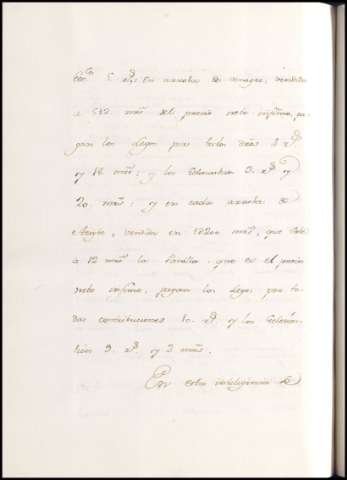 5 rs. en arroba de vinagre, vendida
a 542 mrs. del precio neto infimo, pa-
gan los Legos por todos dros. 2 rs.
y 12 mrs.; y los Eclesiasticos 3. rs. y
20. mrs.; y en cada arroba de
Azeyte, vendida en mrs., que sale
a 12 mrs. la Panilla, que es el precio
neto infimo, pagan los Legos por to-
das contribuciones 10. rs. y los Eclesias-
ticos 9. rs. y 3 mrs.
En esta inteligencia de